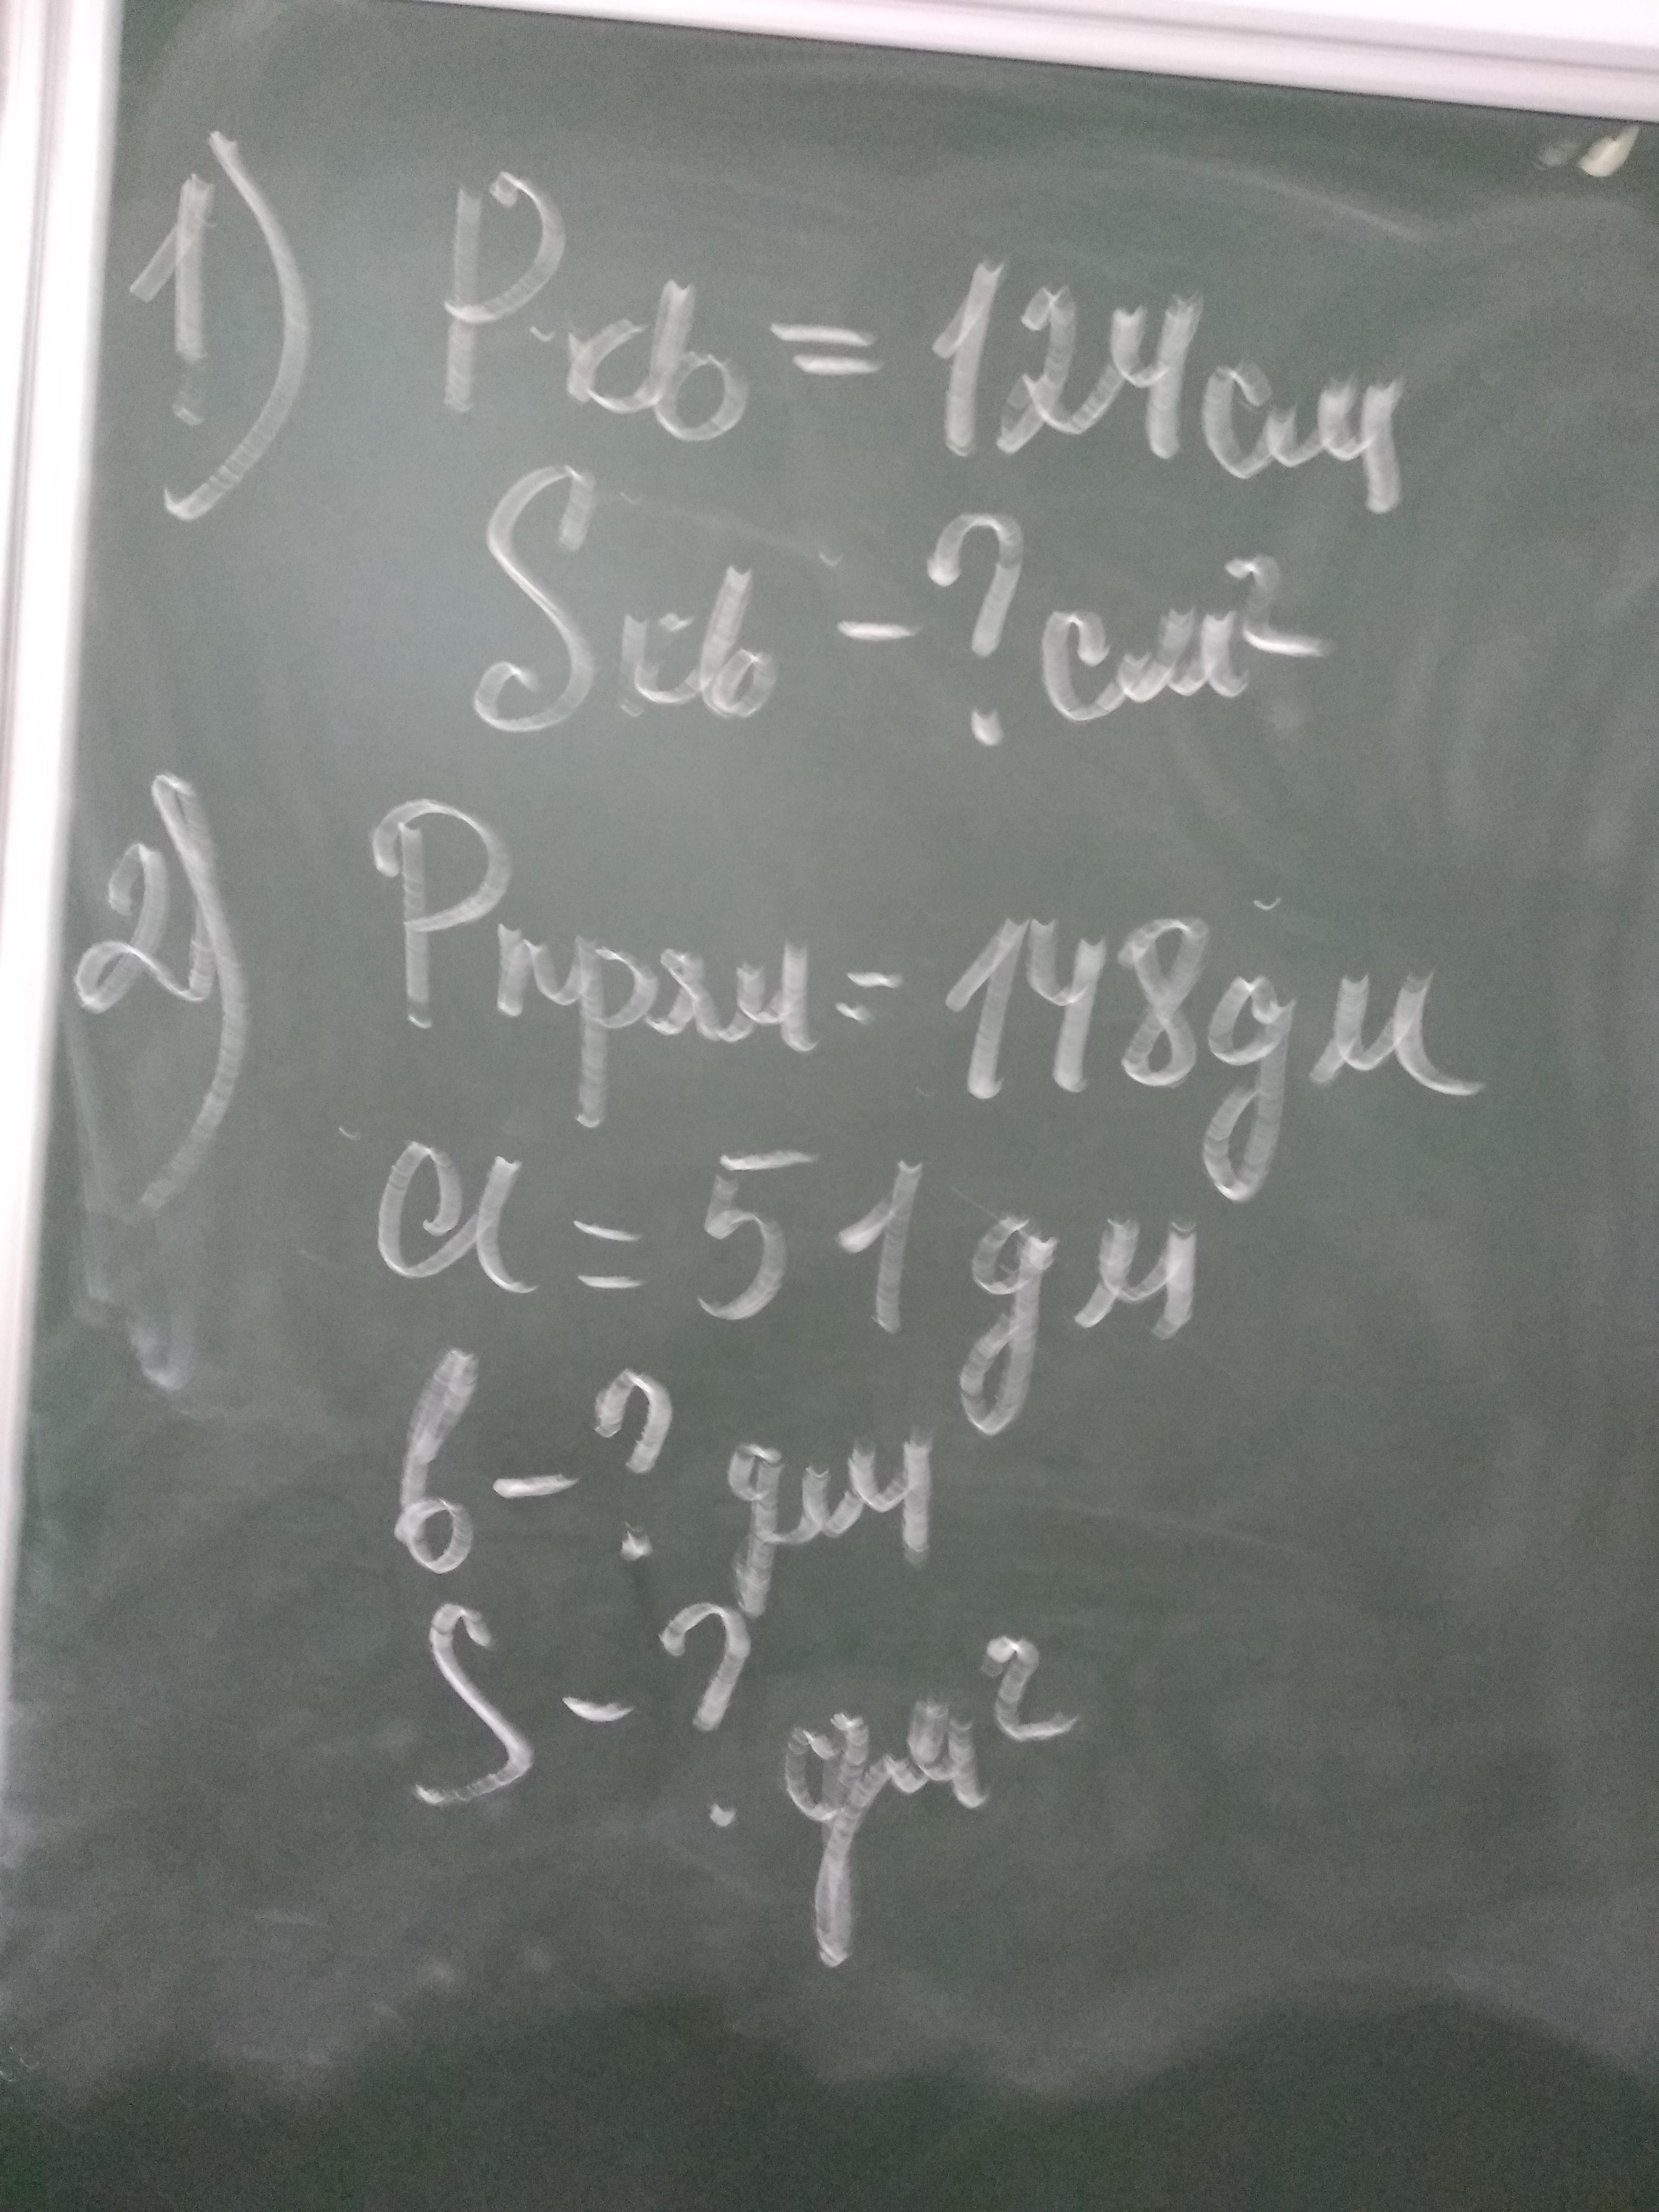 1) Pкв = 124 см
Sкв - ? см²
2) Pпрям = 148 дм
a = 51 дм
b - ? дм
S - ? дм²